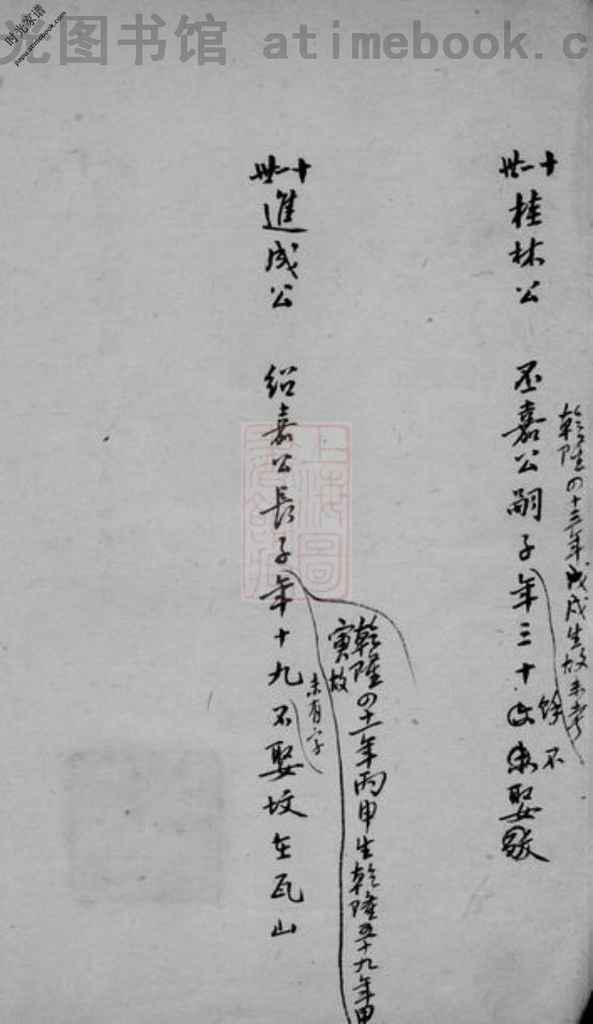 光图书馆 atimebook.c
时光家谱
jiapu.atimebook.com
十一世
桂林公 丕嘉公嗣子年三十 不娶歿
乾隆四十三年戊戌生故未考
十一世
進成公 绍嘉公長子年十九不娶坟在瓦山
未有字
乾隆四十一年丙申生乾隆五十九年甲
寅故
上海圖